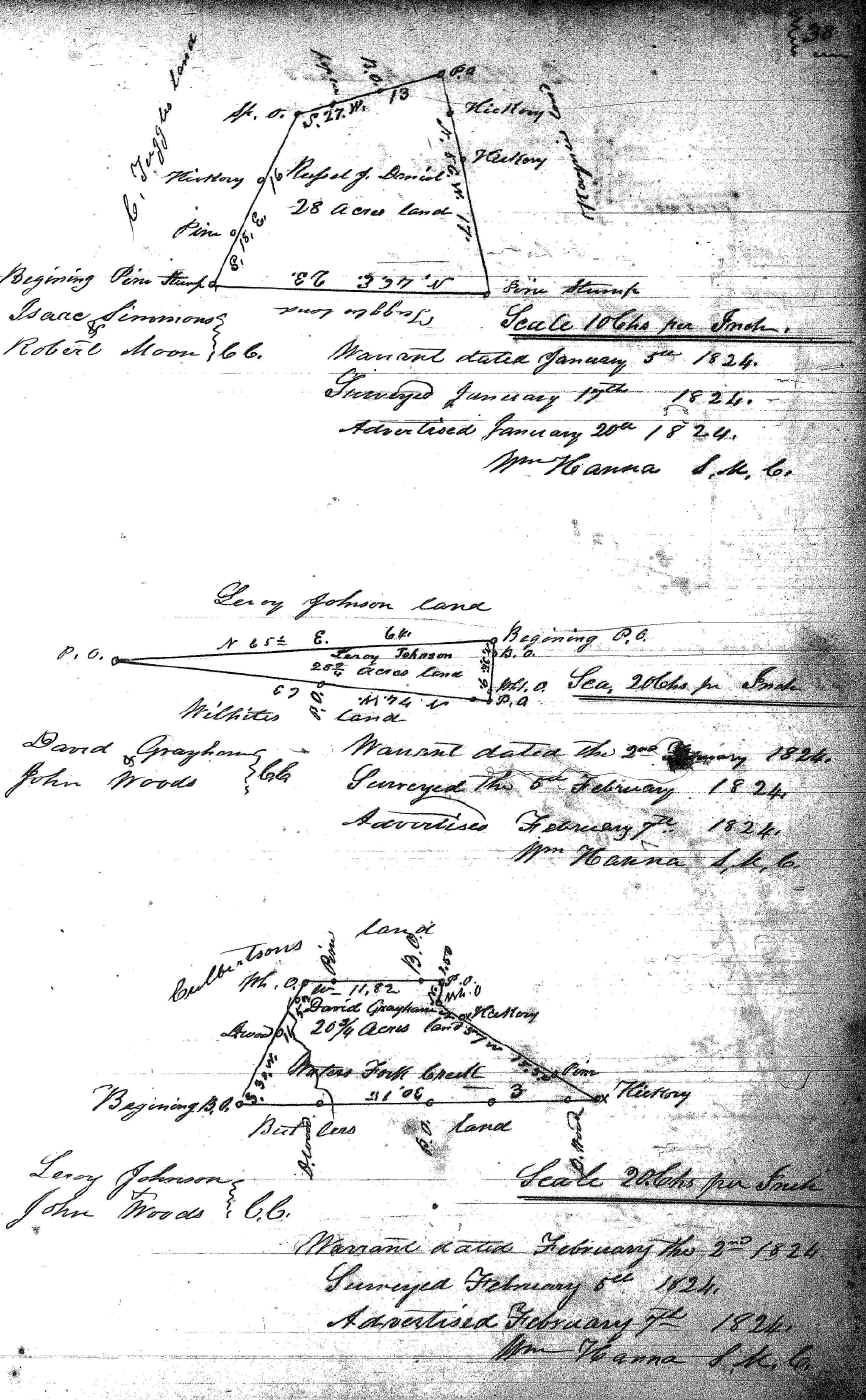 38
C. Tuggles land
B.O.
P.O
Hickory
S. 27. W. 13
Hickory
Hickory 16
Russel J. Daniel
28 Acres land
N. 56. W. 17.
Pine
S. 15. E.
Begining Pine Stump
N. 46 E. 23.
Pine Stump
Tuggles land
Isaac Simmons
&
Robert Moon } C.C.
Scale 10 Chs per Inch.
Warrant dated January 5th 1824.
Surveyed January 17th 1824.
Advertised January 20th 1824.
Wm Hanna S. K. C.
Leroy Johnson land
N 65½ E. 64.
Begining P.O.
P.O.
Leroy Johnson
B.O.
Acres land
Wh. O.
P.O
N. 74. W.
P.O.
Wilhites land
Sca, 20 Chs pr Inch
David Grayham
&
John Woods } CC
Warrant dated the 2nd 1824.
Surveyed the 5th February 1824.
Advertised February 7th 1824.
Wm Hanna S, K, C
Culbertsons land
Pine
B.O.
Wh. O.
W— 11,82
P.O.
Wh. O
David Grayham
Hickory
20¾ Acres land
Waters Fork Creek
Pine
Begining B.O.
3
Hickory
Butlers land
P.O.
Leroy Johnson
&
John Woods } C.C.
Scale 20 Chs per Inch
Warrant dated February the 2nd 1824
Surveyed February 5th 1824.
Advertised February 7th 1824.
Wm Hanna S. K. C.